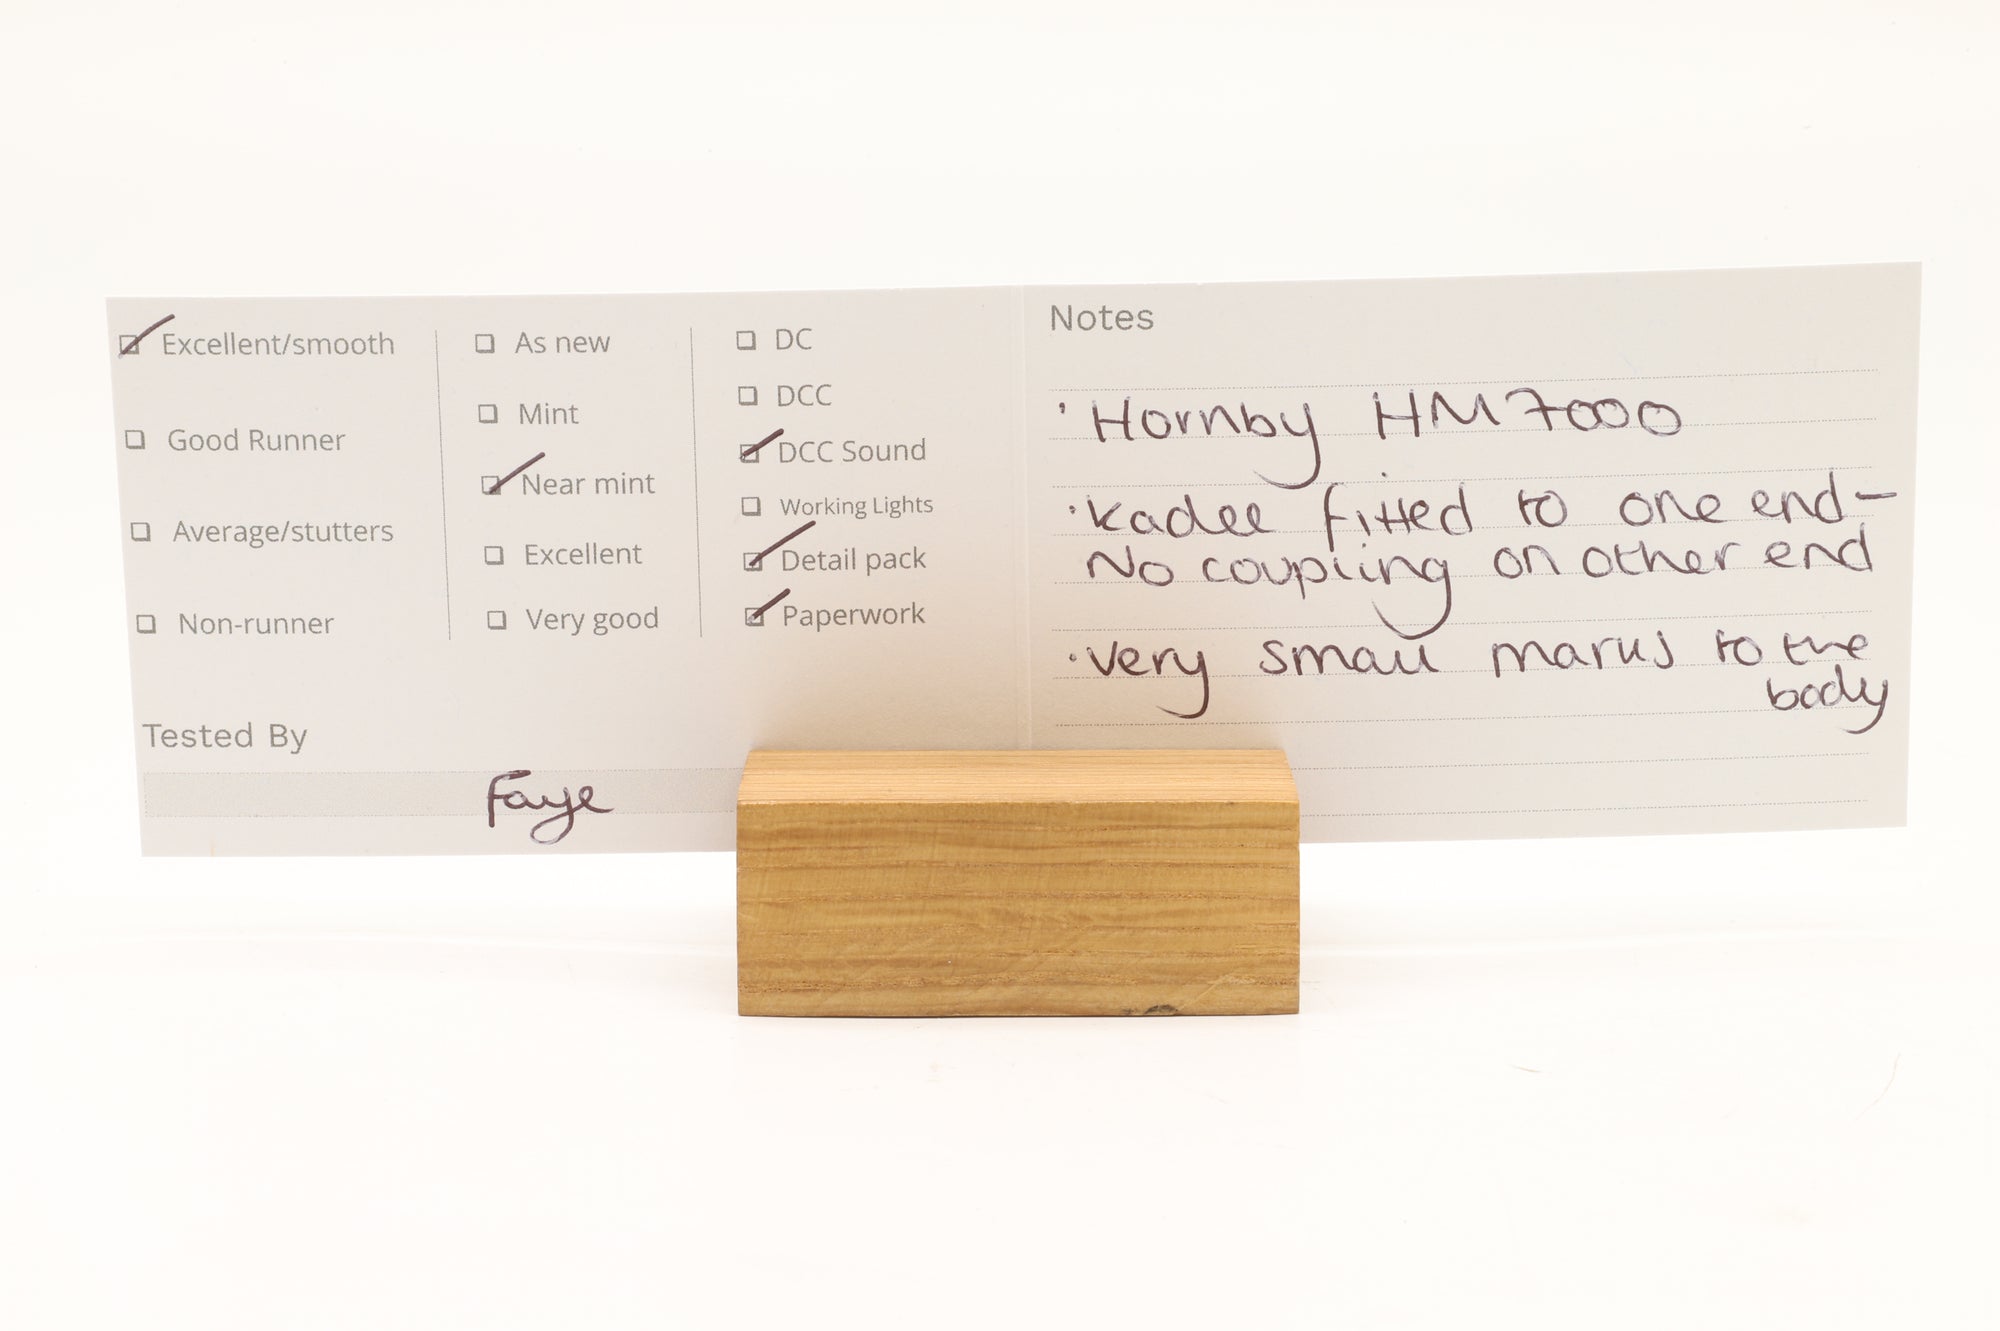 Excellent/smooth
Good Runner
Average/stutters
Non-runner
As new
Mint
Near mint
Excellent
Very good
DC
DCC
DCC Sound
Working Lights
Detail pack
Paperwork
Tested By
Faye
Notes
· Hornby HM7000
· Kadee fitted to one end -
No coupling on other end
· very small marks to the
body